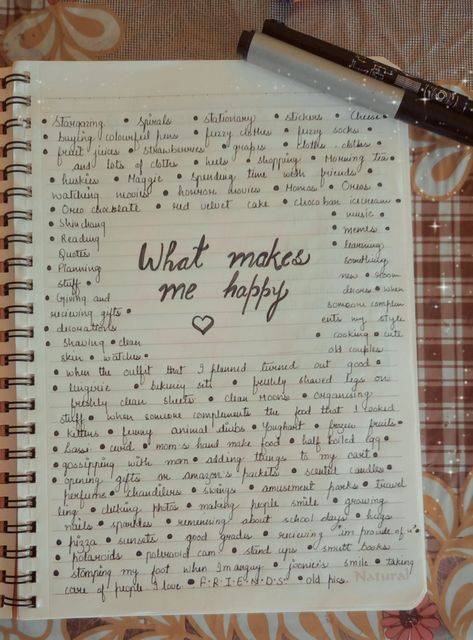 • Stargazing • Spirals • stationary • stickers • Cheese •
• buying colourful pens • fuzzy clothes • fuzzy socks •
• fruit juices • strawberries • grapes • clothes clothes
and lots of cloths • heels • shopping • Morning tea •
• huskies • Maggie • spending time with friends •
watching movies • horror movies • Momos • Oreos •
• Oreo chocolate • red velvet cake • choco bar icecream •
• Shin chang music •
• Reading • memes •
Quotes • learning
• Planning something
stuff • new • room
• Giving and decors • when
recieving gifts • someone complem
• decorations ents my style
• Shaving • clean • cooking • cute
skin • watches • old couples
What makes
me happy
• when the outfit that I planned turned out good •
• lingerie • bakery sets • freshly shaved legs on
freshly clean sheets • clean rooms • organising
stuff • when someone complements the food that I cooked
• kittens • funny animal dubs • Youghart • frozen fruits •
• curd • mom's hand make food • half boiled egg •
• gossipping with mom • adding things to my cart •
• opening gifts or Amazon's packets • scented candles •
perfumes • chandeliers • swings • amusement parks • travel
ling • clicking photos • making people smile • growing
nails • sparkles • remenising about school days • hugs
• pizza • sunsets • good grades • recieving "im proude of u" •
• polaroids • polewroid cam • stand ups • smutt books •
• stomping my foot when I'm angry • smile • taking
care of people I love • F.R.I.E.N.D.S • old pics.
Natural